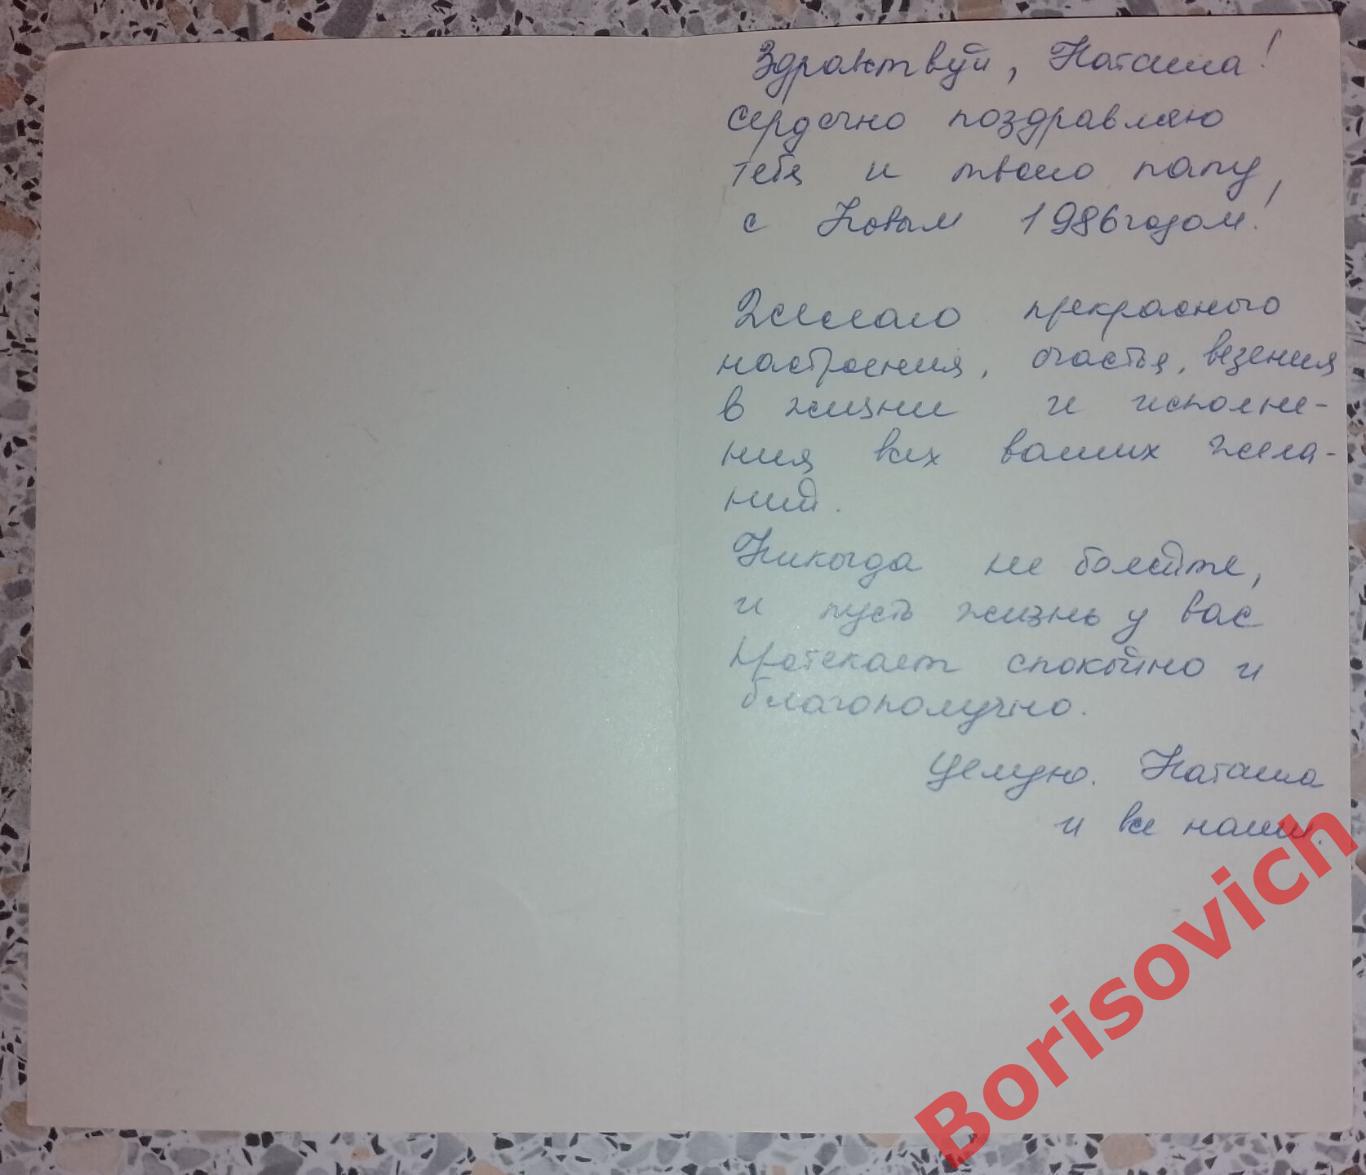 Здравствуй, Наташа!
Сердечно поздравляю
тебя и твою папу,
с Новым 1986 годом!
Желаю прекрасного
настроения, счастья, везения
в жизни и исполне-
ния всех ваших жела-
ний.
Никогда не болейте,
и пусть жизнь у вас
протекает спокойно и
благополучно.
Целую. Наташа
и все наши.
Borisovich